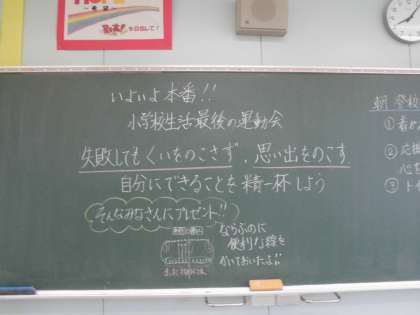 を目指して!
いよいよ本番!!
小学校生活最後の運動会
失敗してもくいをのこさず、思い出をのこす
自分にできることを精一杯しよう
そんなみなさんにプレゼント!!
ならぶのに
便利な線を
かいておいたよ!!
朝 登校
①
②応援
③